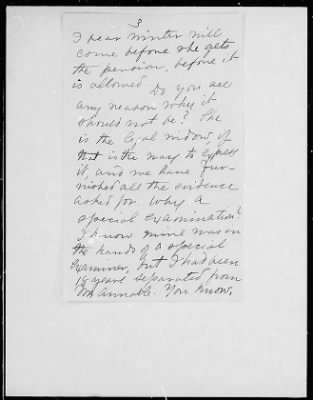 3
I fear Winter will
come before she gets
the pension, before it
is allowed Do you see
any reason why it
should not be? She
is the legal widow, if
that is the way to express
it, and we have fur-
nished all the evidence
asked for. Why a
special examination?
I know mine was in
the hands of a special
Examiner, but I had been
18 years separated from
Mr Annable. You know,